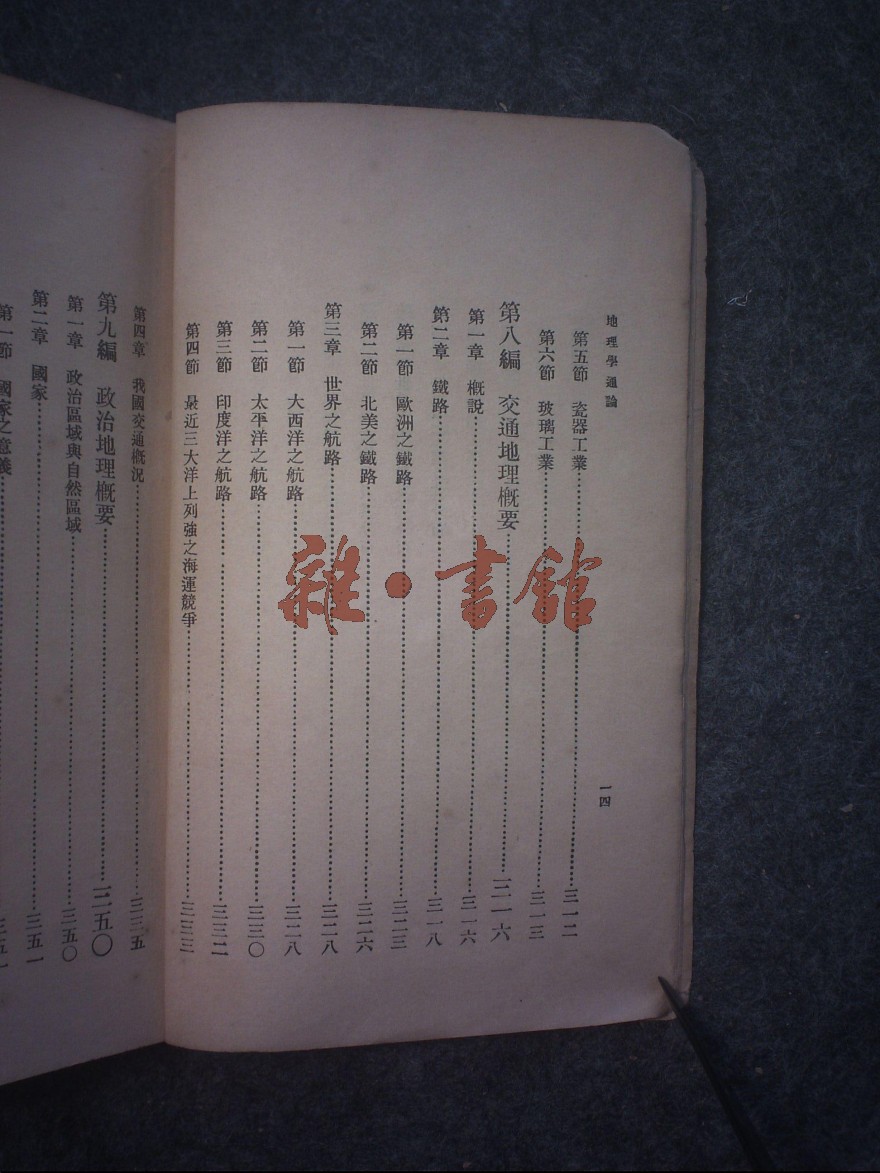 地理學通論
一四
第五節 瓷器工業……三一二
第六節 玻璃工業……三一三
第八編 交通地理概要……三一六
第一章 概說……三一六
第二章 鐵路……三一八
第一節 歐洲之鐵路……三二三
第二節 北美之鐵路……三二六
第三章 世界之航路……三二八
第一節 大西洋之航路……三二八
第二節 太平洋之航路……三三〇
第三節 印度洋之航路……三三二
第四節 最近三大洋上列強之海運競爭……三三三
第四章 我國交通概況……三三五
第九編 政治地理概要……三五〇
第一章 政治區域與自然區域……三五〇
第二章 國家……三五一
第一節 國家之意義……三五一
雜·書館